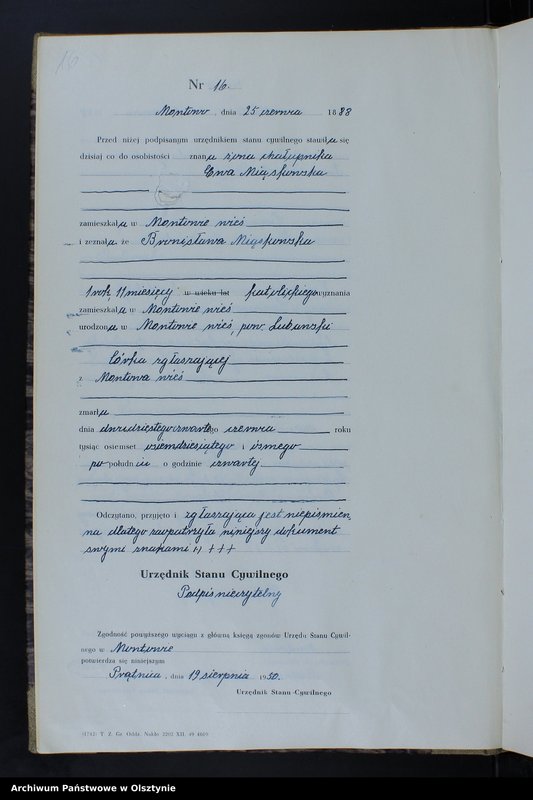 16
Nr 16.
Montowo, dnia 25 czerwca 1888
Przed niżej podpisanym urzędnikiem stanu cywilnego stawiła się
dzisiaj co do osobistości znana żona chałupnika
Ewa Miąskowska
zamieszkała w Montowie wieś
i zeznała że Bronisława Miąskowska
1 rok, 11 miesięcy w wieku lat katolickiego wyznania
zamieszkała w Montowie wieś
urodzona w Montowie wieś, pow. Lubawski
córka zgłaszającej
z Montowa wieś
zmarła
dnia dwudziestegoczwartego czerwca roku
tysiąc osiemset osiemdziesiątego i ósmego
po południu o godzinie czwartej
Odczytano, przyjęto i zgłaszająca jest niepiśmien,
na dlatego zaopatrzyła niniejszy dokument
swymi znakami +++
Urzędnik Stanu Cywilnego
Podpis nieczytelny
Zgodność powyższego wyciągu z główną księgą zgonów Urzędu Stanu Cywil-
nego w Montowie
potwierdza się niniejszym
Prątnica, dnia 19 sierpnia 1950.
Urzędnik Stanu Cywilnego
(1742) T. Z. Gr. Oddz. Nakło 2202 XII. 49
Archiwum Państwowe w Olsztynie